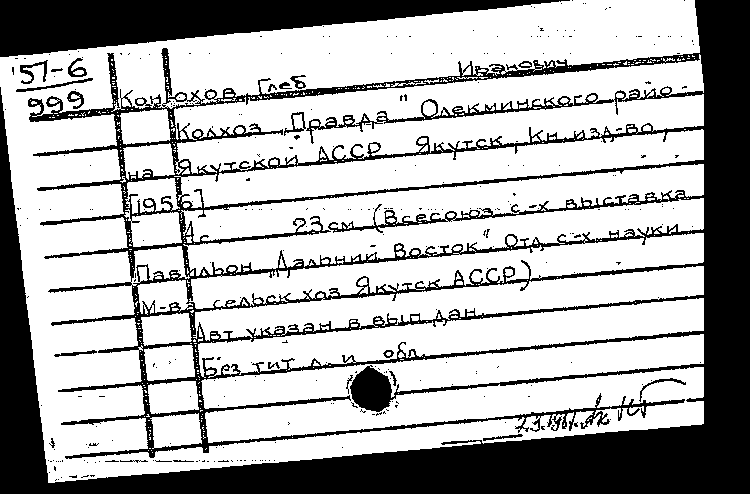 57-6
999
Конюхов, Глеб Иванович
Колхоз „Правда" Олекминского райо-
на Якутской АССР Якутск, Кн. изд-во,
[1956]
4 с. 23 см (Всесоюз. с-х выставка
Павильон „Дальний Восток". Отд. с-х. науки
М-ва сельск хоз Якутск АССР)
Авт указан в вып дан.
Без тит л. и обл.